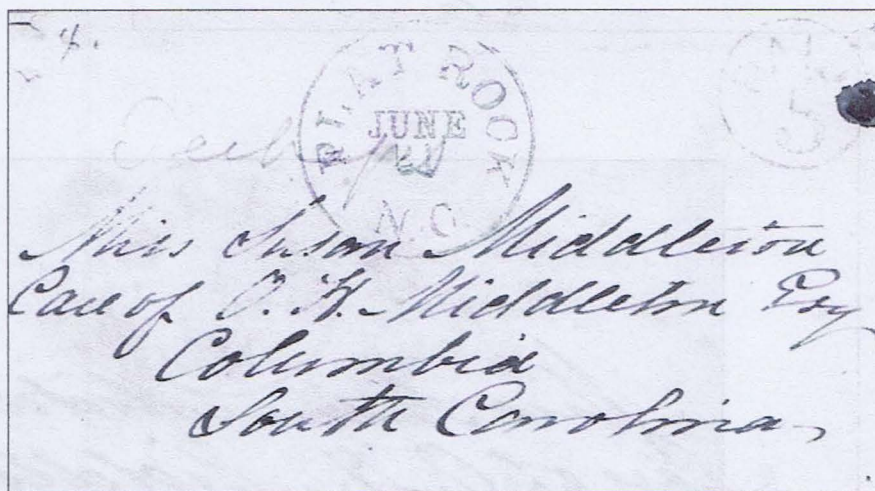 8.
FLAT ROCK
JUNE
N.C.
5
Miss Susan Middleton
Care of O. H. Middleton Esq
Columbia
South Carolina